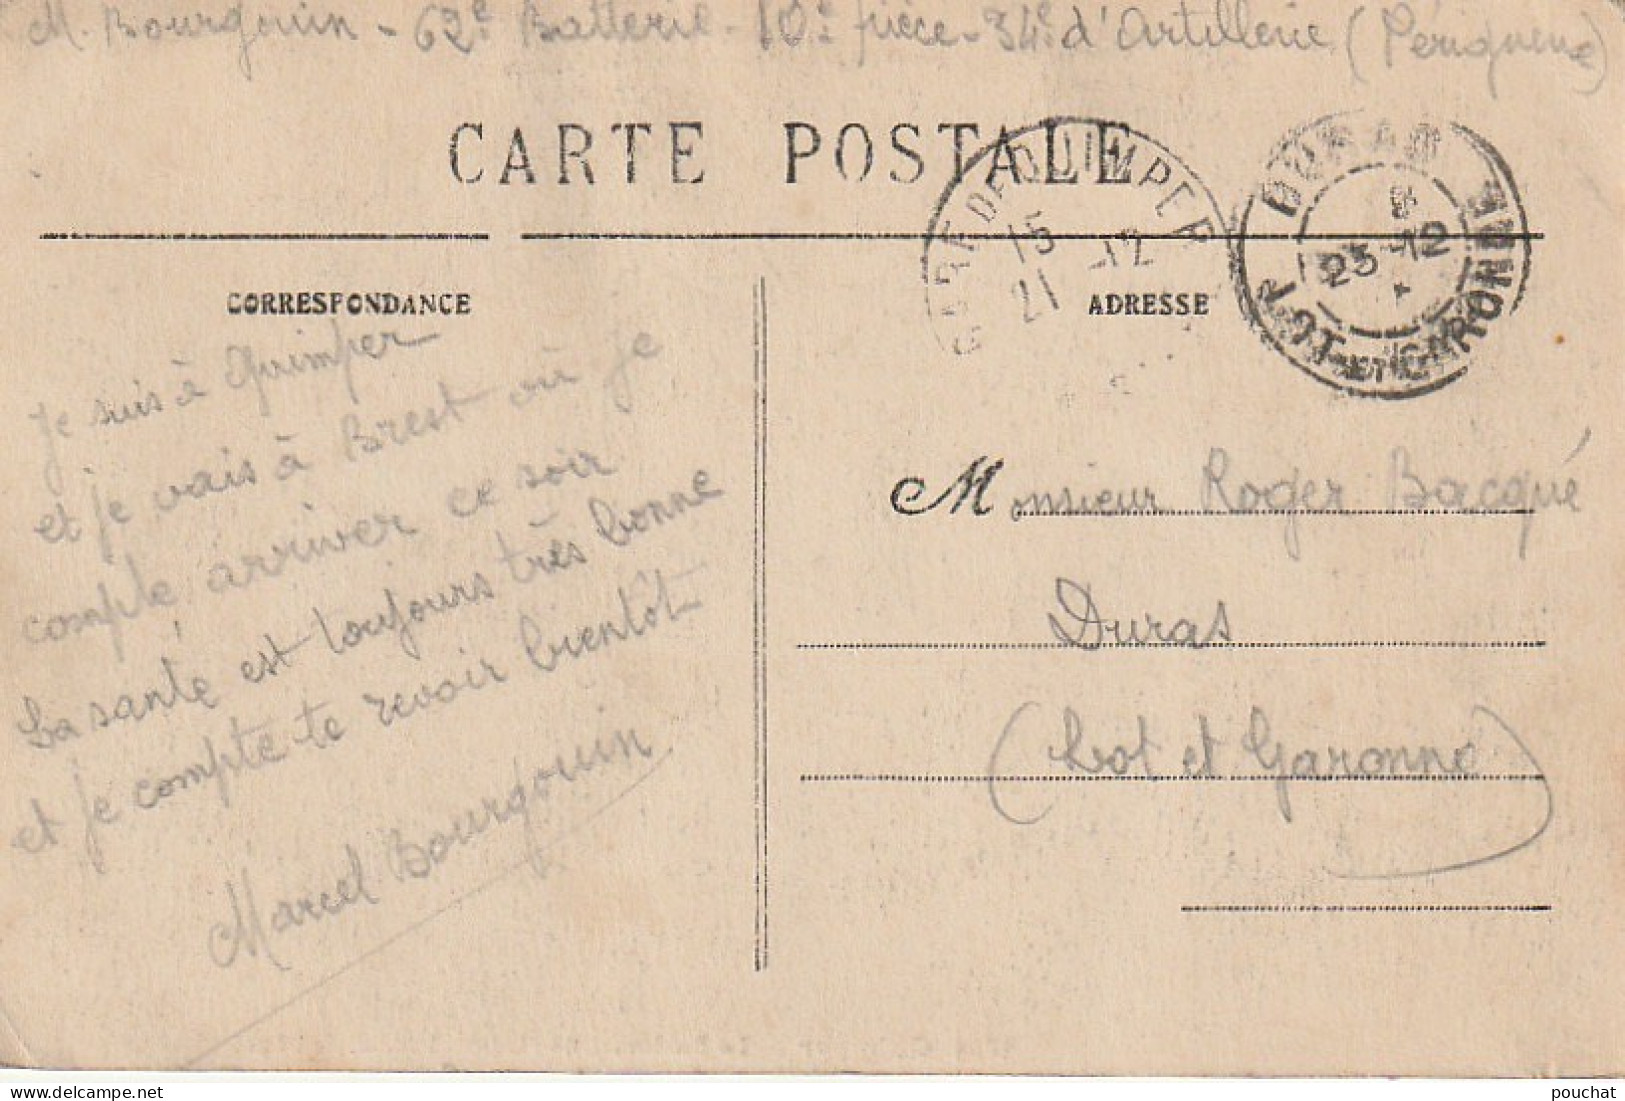 M. Bourgouin - 62e Batterie - 10e pièce - 34e d'Artillerie (Périgueux)
CARTE POSTALE
GARE DE QUIMPER
15
21 -12
DURAS
23-12
LOT-ET-GARONNE
CORRESPONDANCE
ADRESSE
Je suis à Quimper
et je vais à Brest où je
compte arriver ce soir
La santé est toujours très bonne
et je compte te revoir bientôt
Marcel Bourgouin
Monsieur Roger Bacqué
Duras
(Lot et Garonne)
pouchat